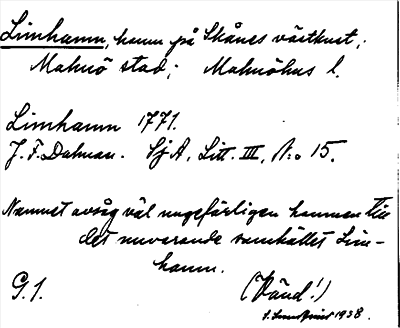 Limhamn, hamn på Skånes västkust;
Malmö stad; Malmöhus l.
Limhamn 1771.
J. F. Dalman. Sj A, Litt. III, N:o 15.
Namnet avsåg väl ungefärligen hamnen till
det nuvarande samhället Lim-
hamn.
G. 1. (Vänd!)
1938.